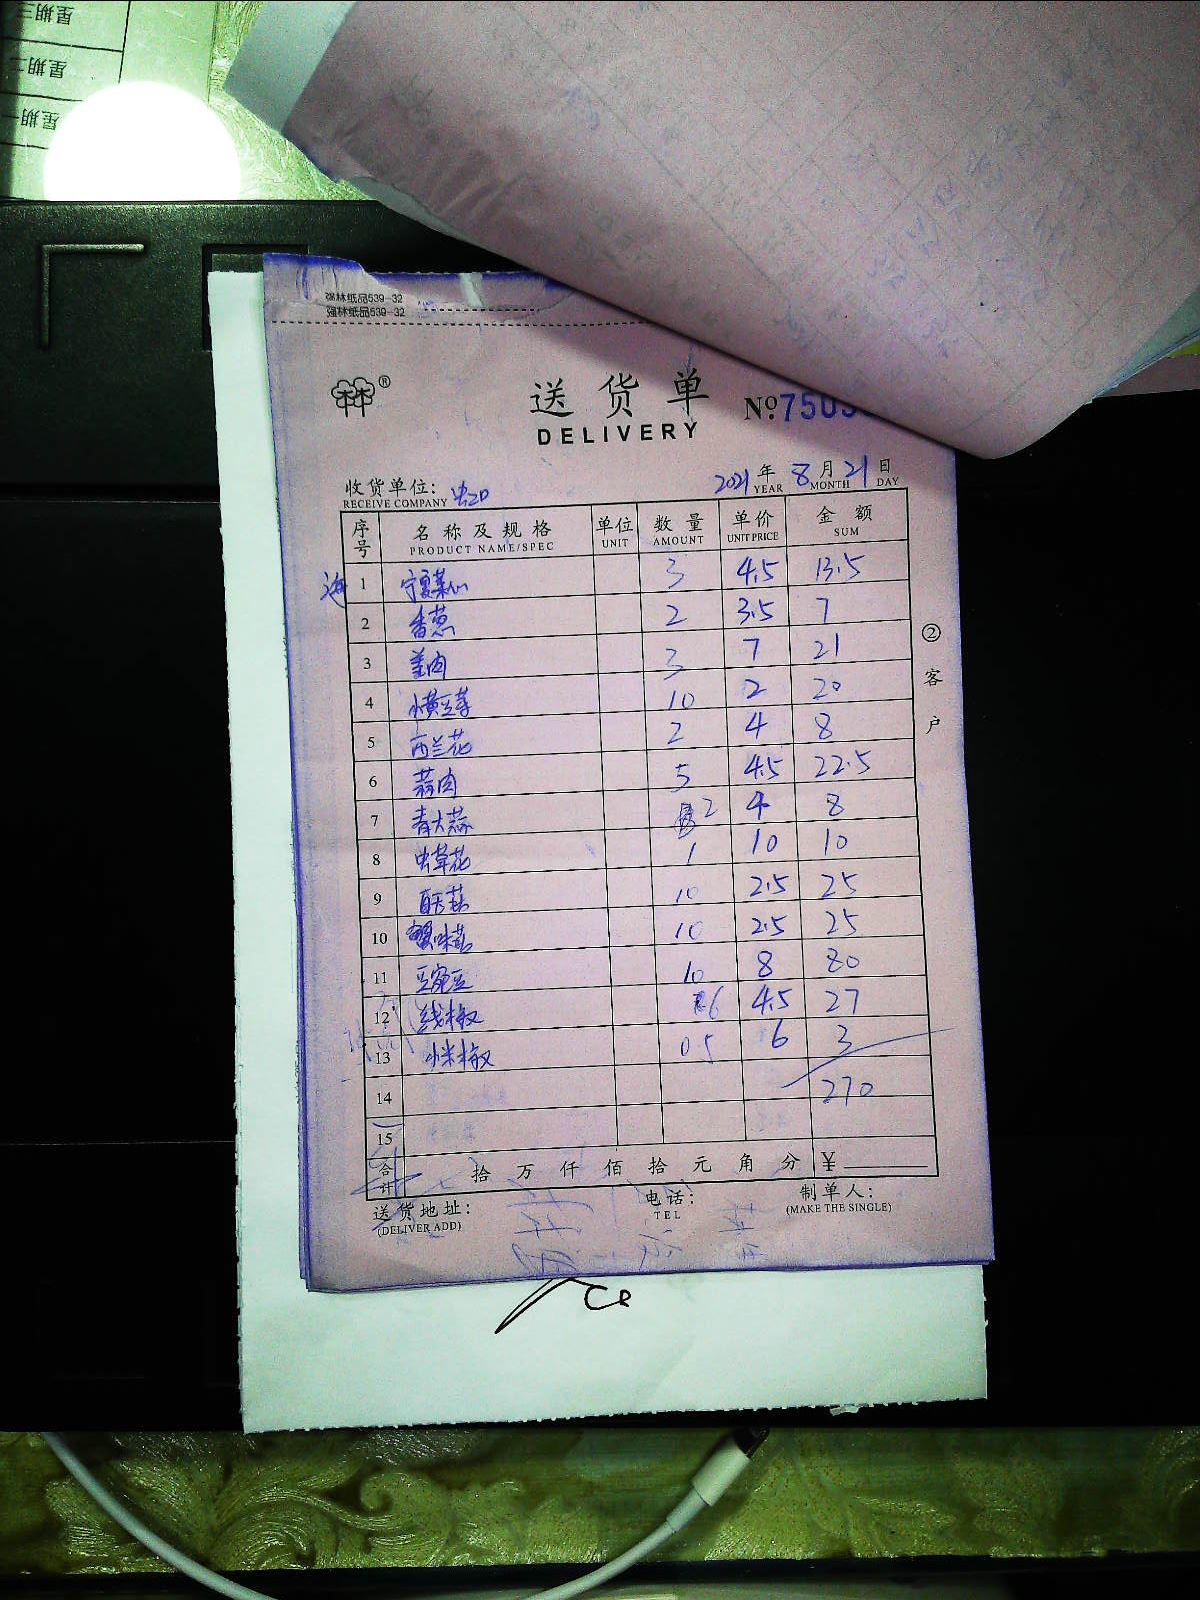 星期三
星期二
星期一
强林纸品539-32
强林纸品539-32
林®
送货单 №750
DELIVERY
收货单位: 2021年8月21日
RECEIVE COMPANY YEAR MONTH DAY
序号 名称及规格 单位 数量 单价 金额
PRODUCT NAME/SPEC UNIT AMOUNT UNIT PRICE SUM
海 1 宁夏菜心 3 4.5 13.5
2 香葱 2 3.5 7
3 姜肉 3 7 21
4 小黄豆芽 10 2 20
5 西兰花 2 4 8
6 蒜肉 5 4.5 22.5
7 青大蒜 2 4 8
8 虫草花 1 10 10
9 10 2.5 25
10 蟹味菇 10 2.5 25
11 豆宛豆 10 8 80
12 线椒 6 4.5 27
13 小米椒 0.5 6 3
14 270
15
合计 拾万仟佰拾元角分 ¥
送货地址: 电话: 制单人:
(DELIVER ADD) TEL (MAKE THE SINGLE)
②客户